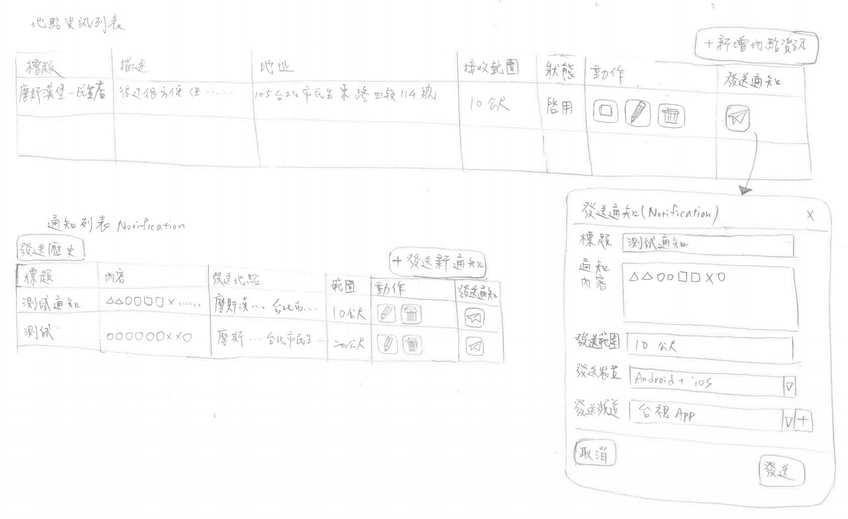 地點資訊列表
+新增地點資訊
標題 描述 地址 接收範圍 狀態 動作 發送通知
摩斯漢堡-民生店 105台北市民生東路四段114號 10公尺 啓用
通知列表 Notification
發送歷史
+發送新通知
標題 內容 發送地點 範圍 動作 發送通知
測試通知 △△○○□□×...... 摩斯漢... 台北市... 10公尺
測試 ○○○○○○××○ 摩斯... 台北市民生... 20公尺
發送通知(Notification) X
標題 測試通知
通知內容 △△○○□□×○
發送範圍 10公尺
發送裝置 Android + iOS
發送頻道 台視 App +
取消 發送